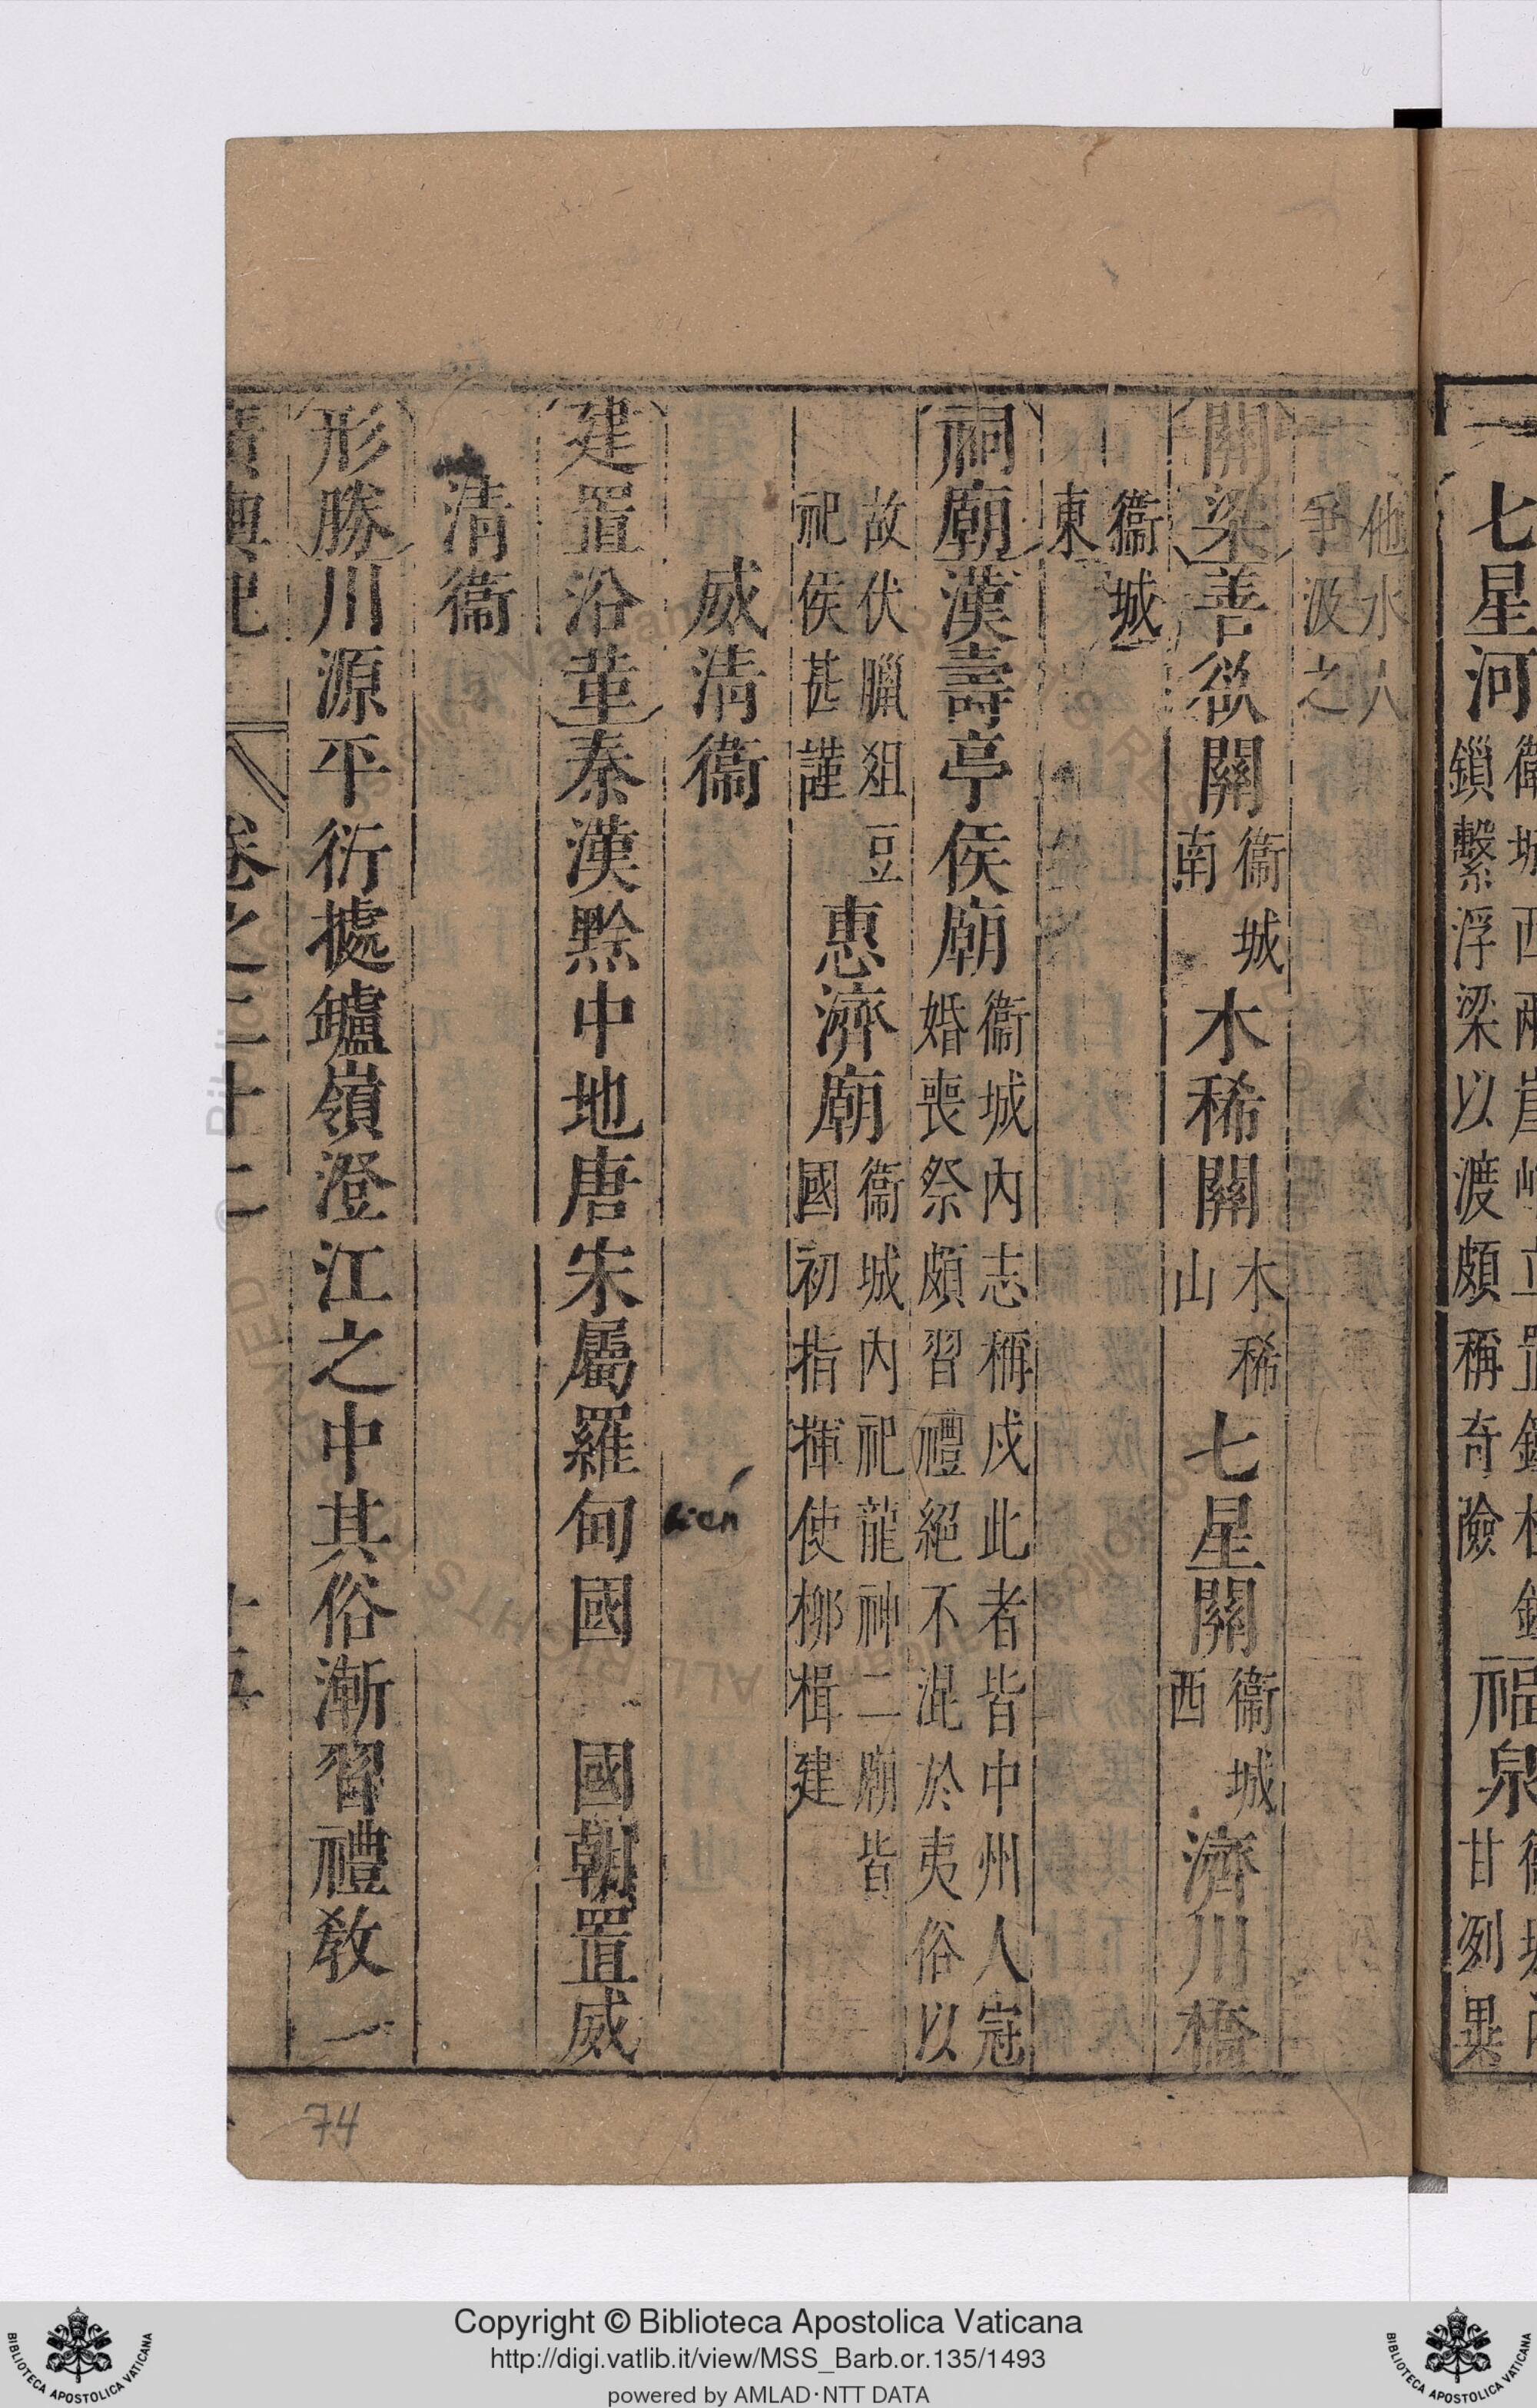 七星河
衞城西兩崖
鎖繫浮梁以渡頗稱奇險
福泉
甘冽異
他水人
爭汲之
關梁善欲關
衞城
南
木稀關
木稀
山
七星關
衞城
西
濟川橋
衞城
東
祠廟漢壽亭侯廟
衞城內志稱戍此者皆中州人冠
婚喪祭頗習禮絕不混於夷俗以
故伏臘俎豆
祀侯甚謹
惠濟廟
衞城內祀龍神二廟皆
國初指揮使栁楫建
威淸衞
建置沿革秦漢黔中地唐宋屬羅甸國 國朝置威
淸衞
形勝川源平衍據鑪嶺澄江之中其俗漸習禮敎
卷之二十二
十五
74
Copyright © Biblioteca Apostolica Vaticana
http://digi.vatlib.it/view/MSS_Barb.or.135/1493
powered by AMLAD·NTT DATA
BIBLIOTECA APOSTOLICA VATICANA
BIBLIOTECA APOSTOLICA VATICANA